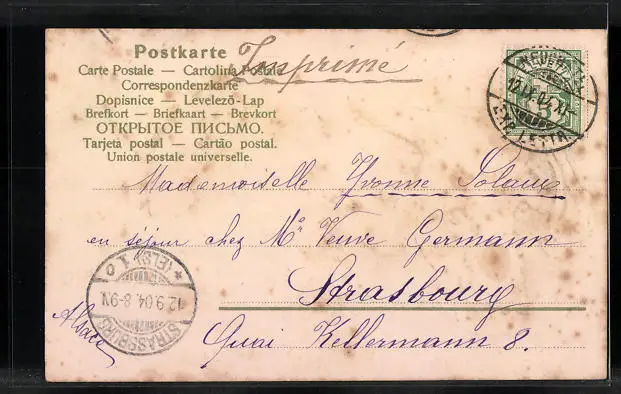 Postkarte
Imprimé
Carte Postale — Cartolina Postale
Correspondenzkarte
Dopisnice — Levelező-Lap
Brefkort — Briefkaart — Brevkort
ОТКРЫТОЕ ПИСЬМО.
Tarjeta postal — Cartão postal.
Union postale universelle.
Mademoiselle Yvonne
en séjour chez Mᵉ Veuve Germann
Strasbourg
Quai Kellermann 8.
Alsace
STRASSBURG
12.9.04.8-9N.
* (ELS) 1 o